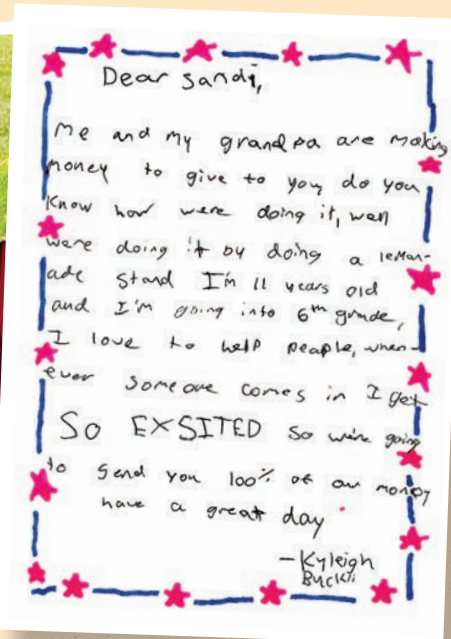 Dear Sandi,
Me and my grandpa are making
money to give to you, do you
know how were doing it, well
were doing it by doing a leman-
ade stand I'm 11 years old
and I'm going into 6th grade,
I love to help peaple, when-
ever someone comes in I get
So EXSITED so we're going
to send you 100% of our money
have a great day
-Kyleigh